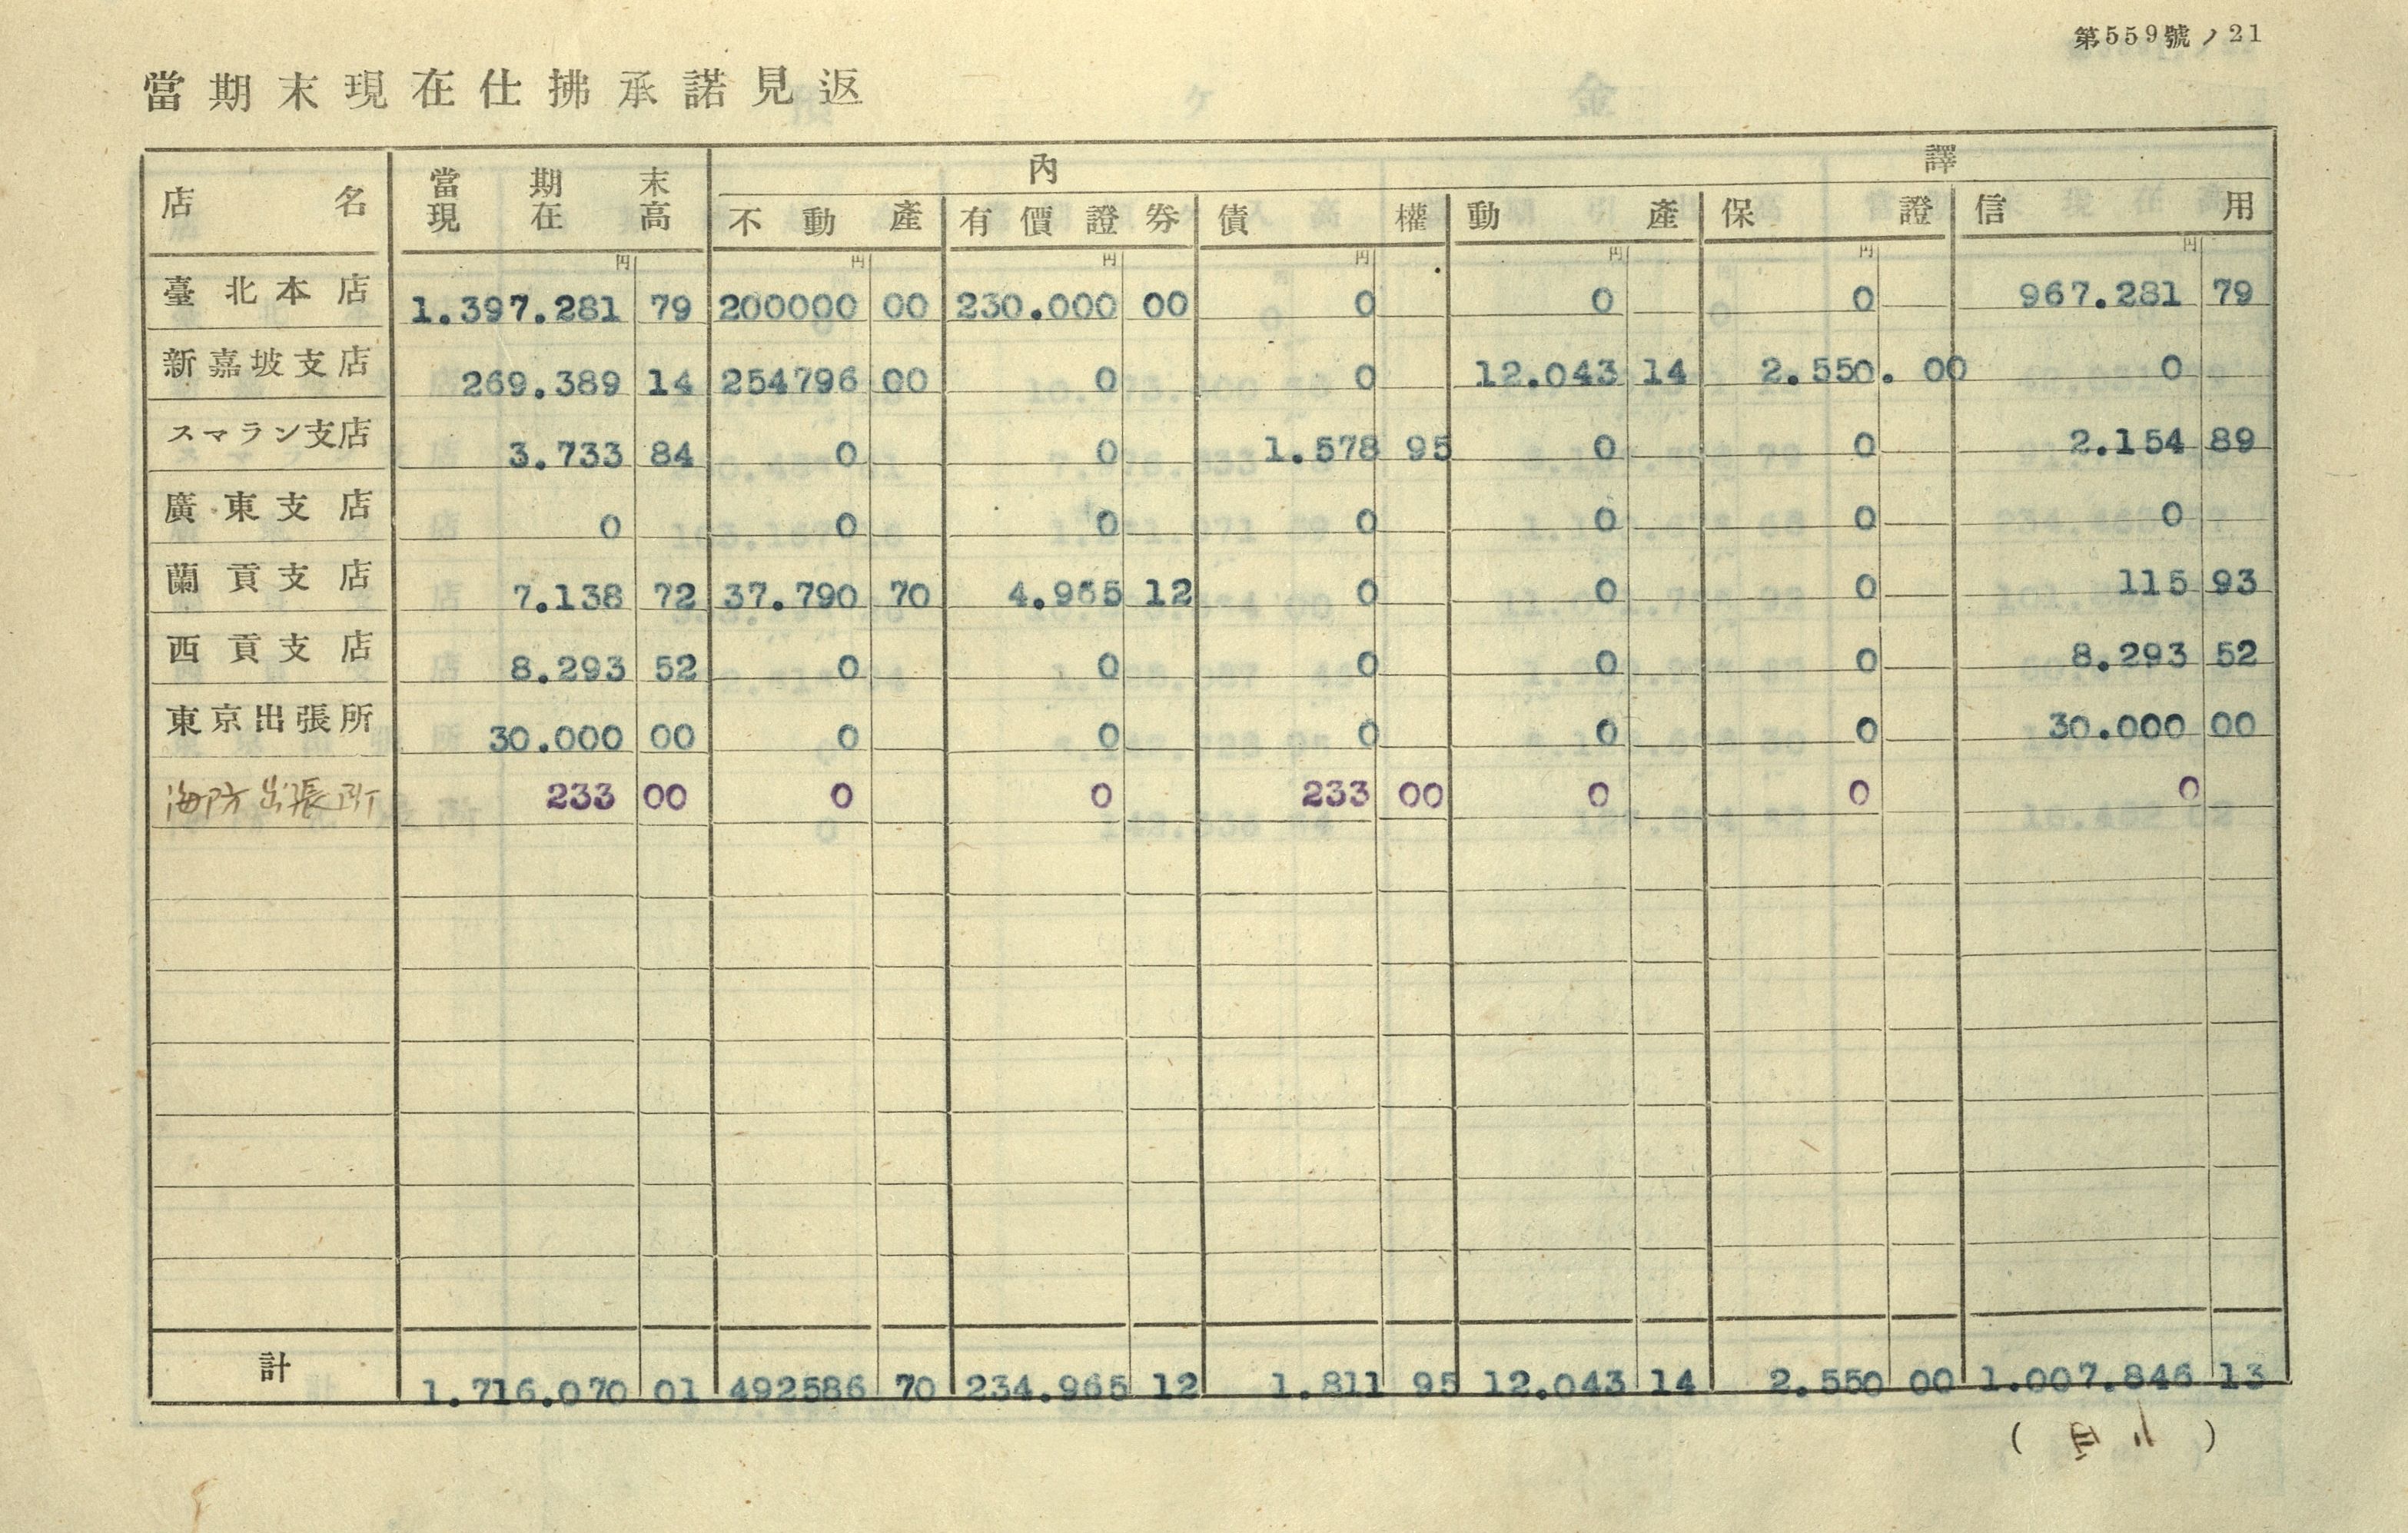 第559號ノ21
當期末現在仕拂承諾見返
店名 當期末現在高 內譯
不動產 有價證券 債權 動產 保證 信用
円 円 円 円 円 円 円
臺北本店 1.397.281 79 200000 00 230.000 00 0 0 0 967.281 79
新嘉坡支店 269.389 14 254796 00 0 0 12.043 14 2.550. 00 0
スマラン支店 3.733 84 0 0 1.578 95 0 0 2.154 89
廣東支店 0 0 0 0 0 0 0
蘭貢支店 7.138 72 37.790 70 4.965 12 0 0 0 115 93
西貢支店 8.293 52 0 0 0 0 0 8.293 52
東京出張所 30.000 00 0 0 0 0 0 30.000 00
海防出張所 233 00 0 0 233 00 0 0 0
計 1.716.070 01 492586 70 234.965 12 1.811 95 12.043 14 2.550 00 1.007.846 13